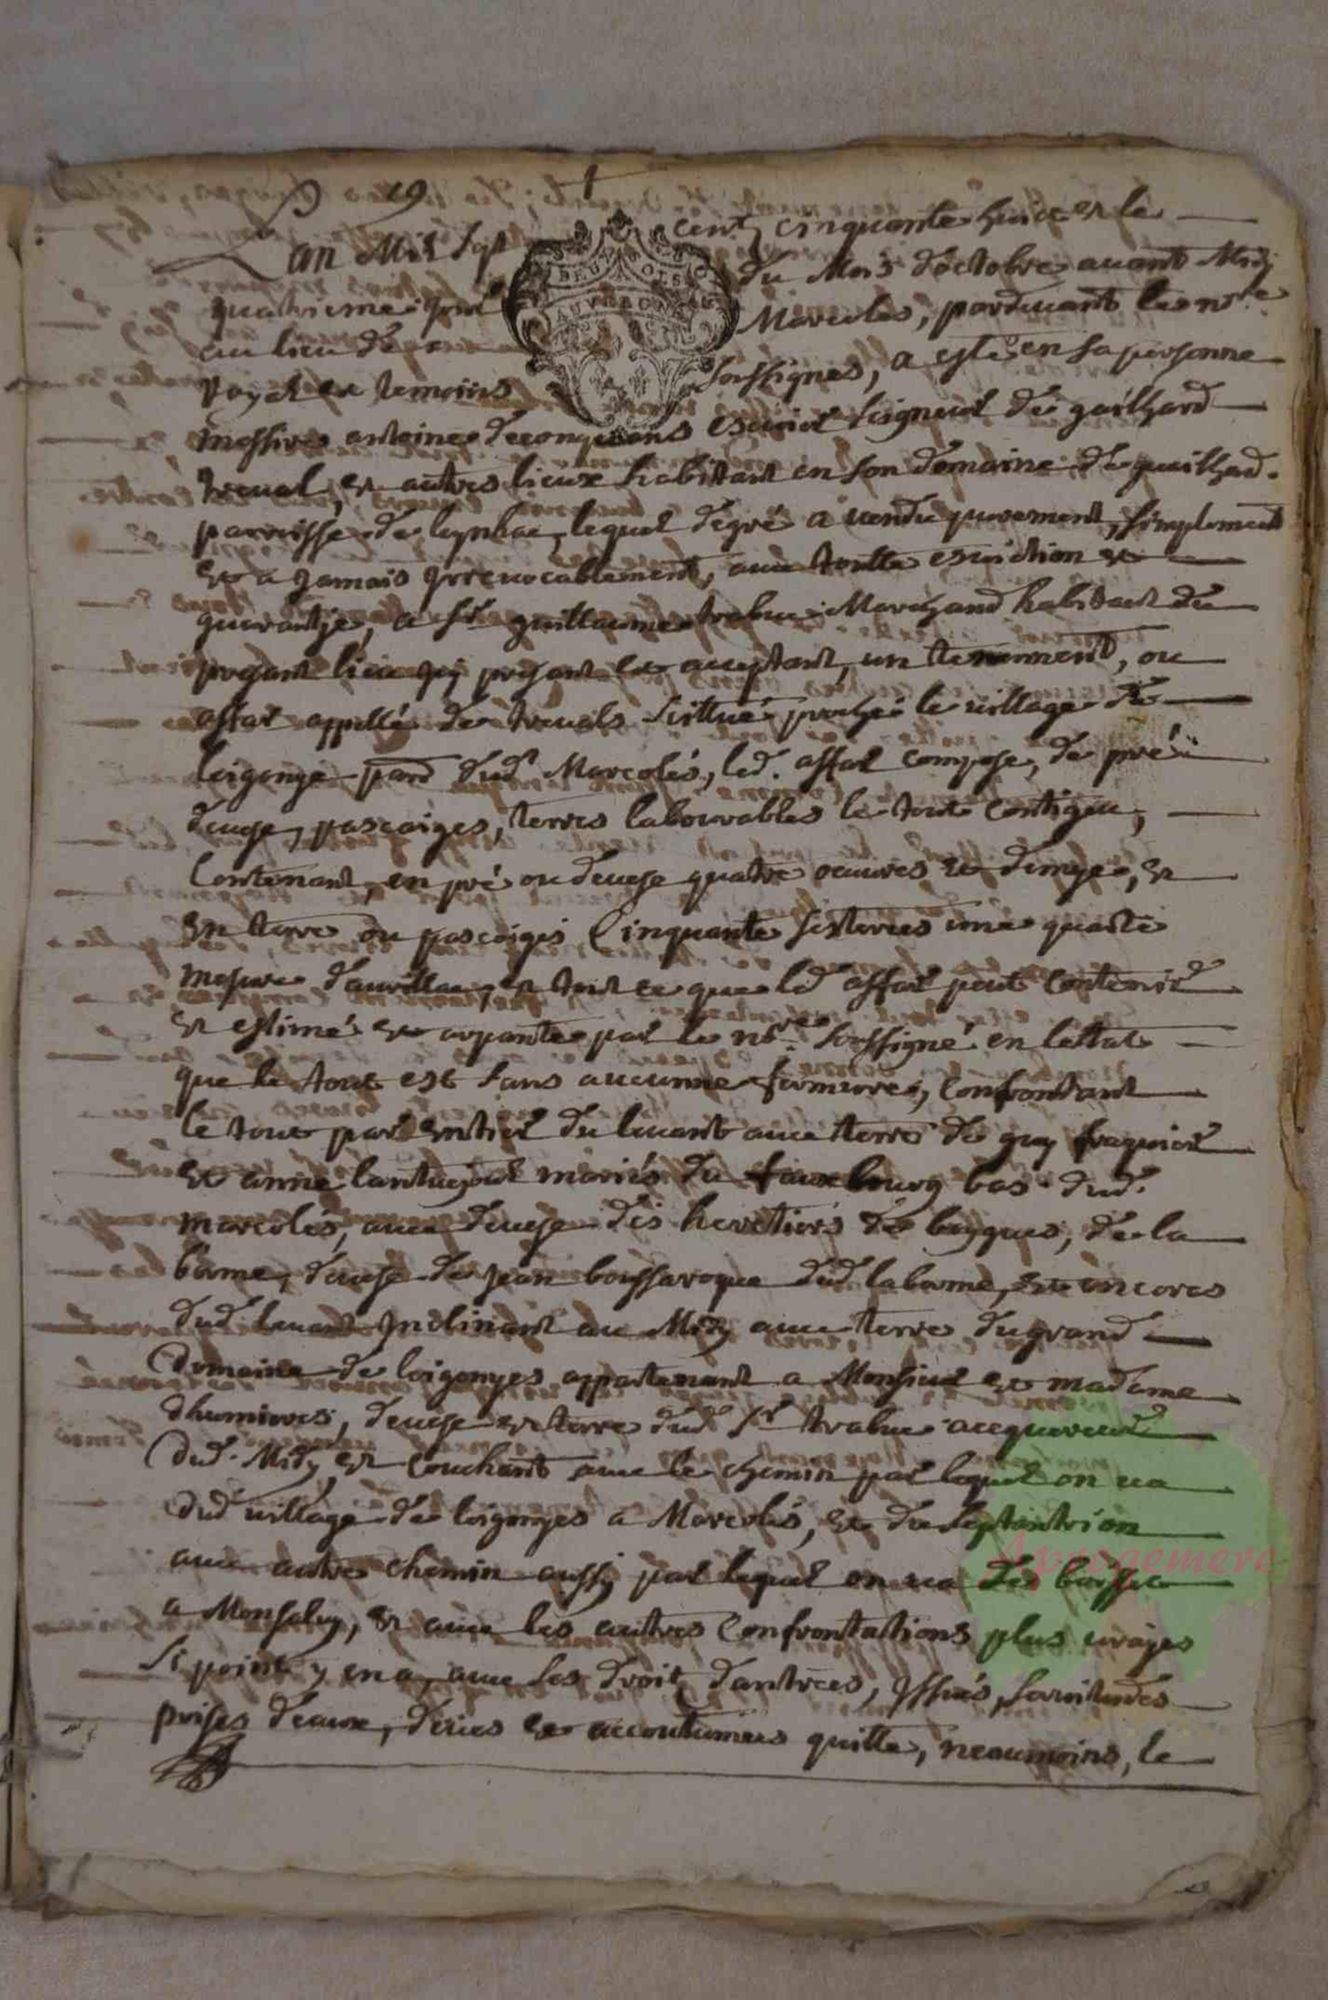 Lan Mil Sept cent cinquante huit et le
quatrieme jour du Mois d'octobre avant Midy
au lieu de Marcoles, pardevant le nre
Royal et temoins soussignes, a esté en sa personne
messire antoine escuier seigneur de gailhard
treval, et autres lieux habitant en son domaine de gailhard.
parroisse de leynhac, lequel de gré a vendu purement, simplement
et a Jamais Irrevocablement, avec toutte esviction et
guarantje, a Sr guillaume trabuc Marchand habitant du
presant lieu Icy presant et acceptant, un tenement, ou
affar appellé de trevals scittué proche le village de
loigonge parr. dud. Marcolés, led. affar compose, de pré
deveze, pascaiges, terres labourables le tout contigeu,
Contenant, en pré ou deveze quatre oeuvres et demye, et
En terre ou pascaiges Cinquante sesterees une quarte
mesure d'aurillac, et tout ce que led. affar peut contenir
et estimé et arpante par le nre soussigné en lettat
que le tout est sans aucunne Confrontant
le tout par Entier du levant avec terre de guy fraquier
et anne lantuejoul mariés du faux bourg bas dud.
marcolés, avec deveze des heretiers de de la
borme, deveze de jean boussaroque dud. laborme, et encores
dud. levant Inclinant au Midy avec terre du grand
Domaine de loigonges appartenant a Monsieur et madame
dhumieres, deveze et terre dud. Sr trabuc acquereur
Dud. Midy et Couchant avec le chemin par lequel on va
Dud. village de loigonges a Marcolés, et du septantrion
avec autre chemin aussy par lequel on va
a Monsalvy, et avec les autres Confrontations plus vrayes
Si point y en a, avec ses droit d'antrées, Issues, servitudes
prises deaux, deues et accoutumees quitte, neaumoins, le
DEUX SOLS
AUVERGNE
Apprgemere